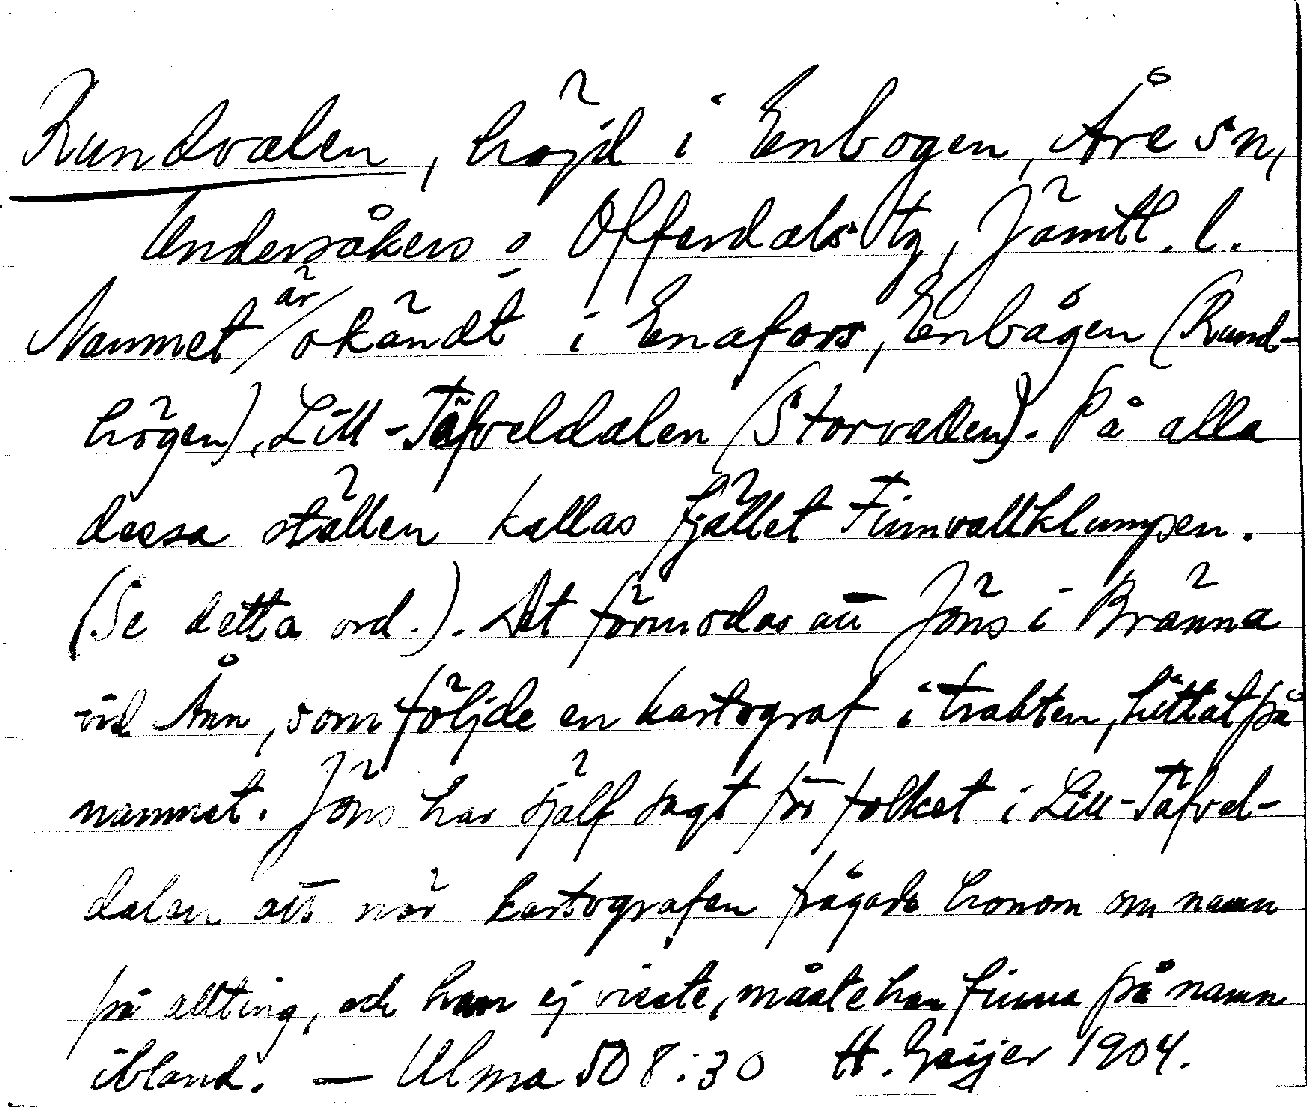 Rundvalen, höjd i Enbogen, Åre sn,
Undersåkers o Offerdals tg, Jämtl. l.
Namnet är okändt i Enafors, Enbågen (Rund-
högen), Lill-Täfveldalen (Storvallen). På alla
dessa ställen kallas fjället Finnvallklumpen.
(Se detta ord.). Det förmodas att Jöns i Bränna
vid Ånn, som följde en kartograf i trakten, hittat på
namnet. Jöns har själf sagt för folket i Lill-Täfvel-
dalen att när kartografen frågade honom om namn
på allting, och han ej visste, måste han finna på namn
ibland. — Ulma 508:30 H. Geijer 1904.